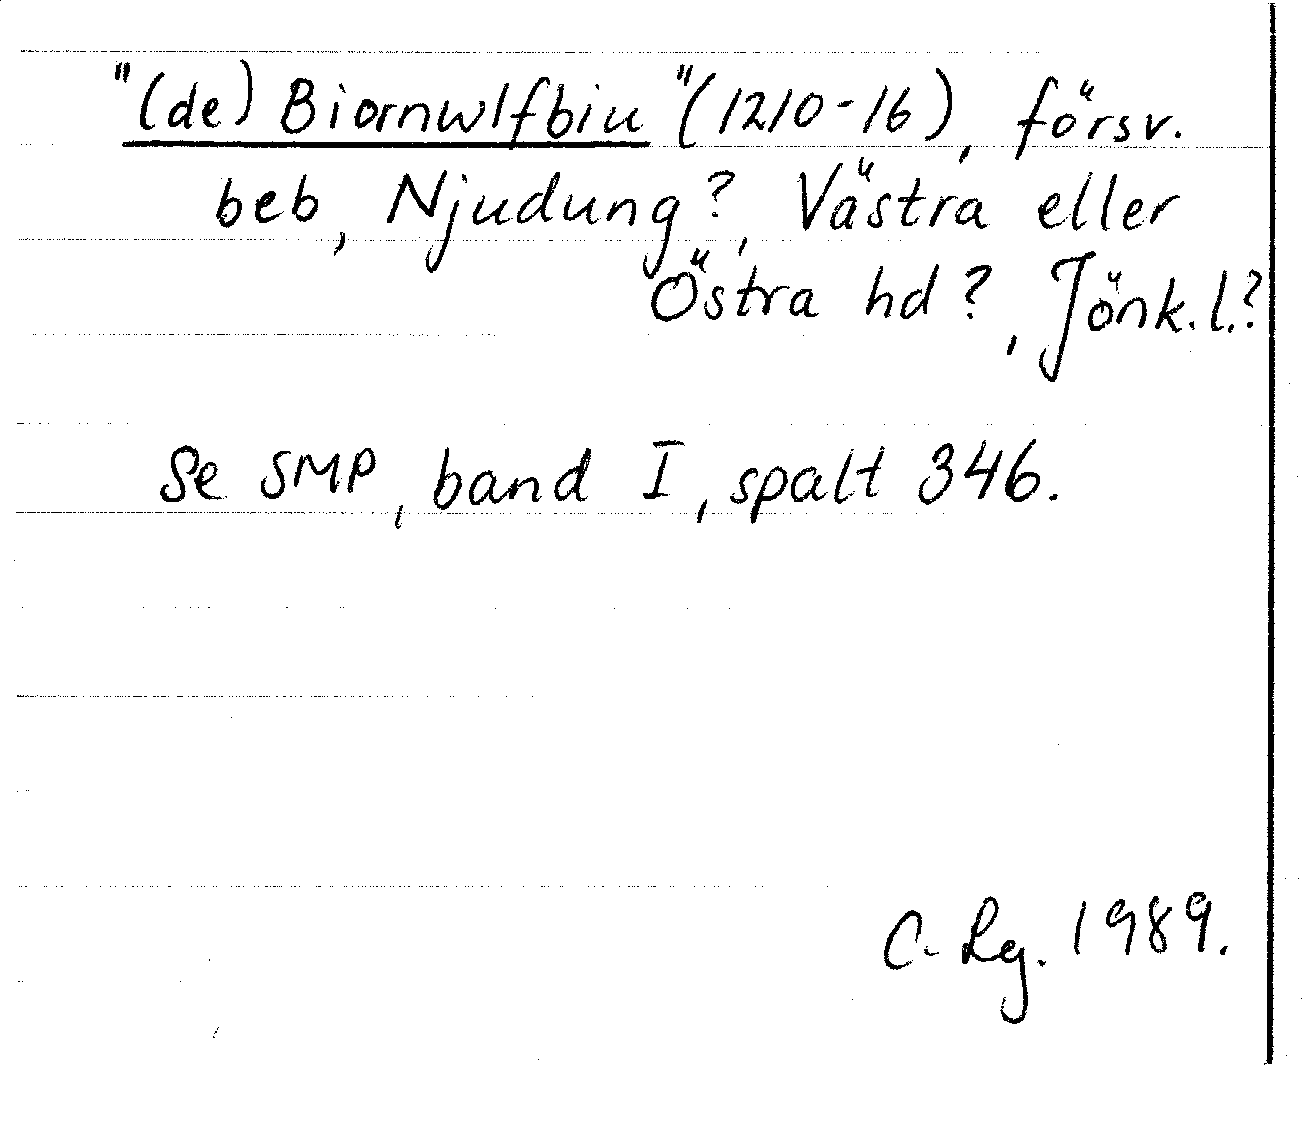 "(de) Biornwlfbiu" (1210-16), försv.
beb, Njudung?, Västra eller
Östra hd?, Jönk.l.?
Se SMP, band I, spalt 346.
C. Lg. 1989.